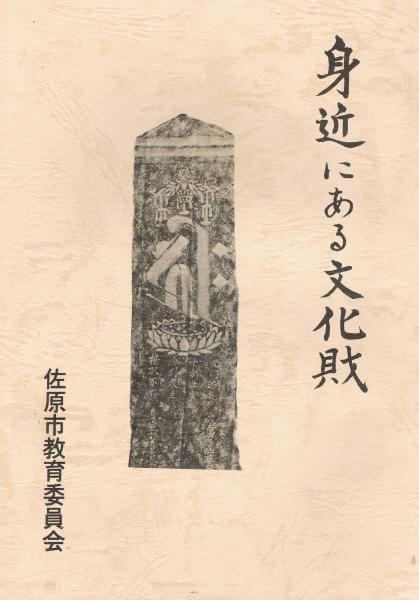 身近にある文化財
佐原市教育委員会